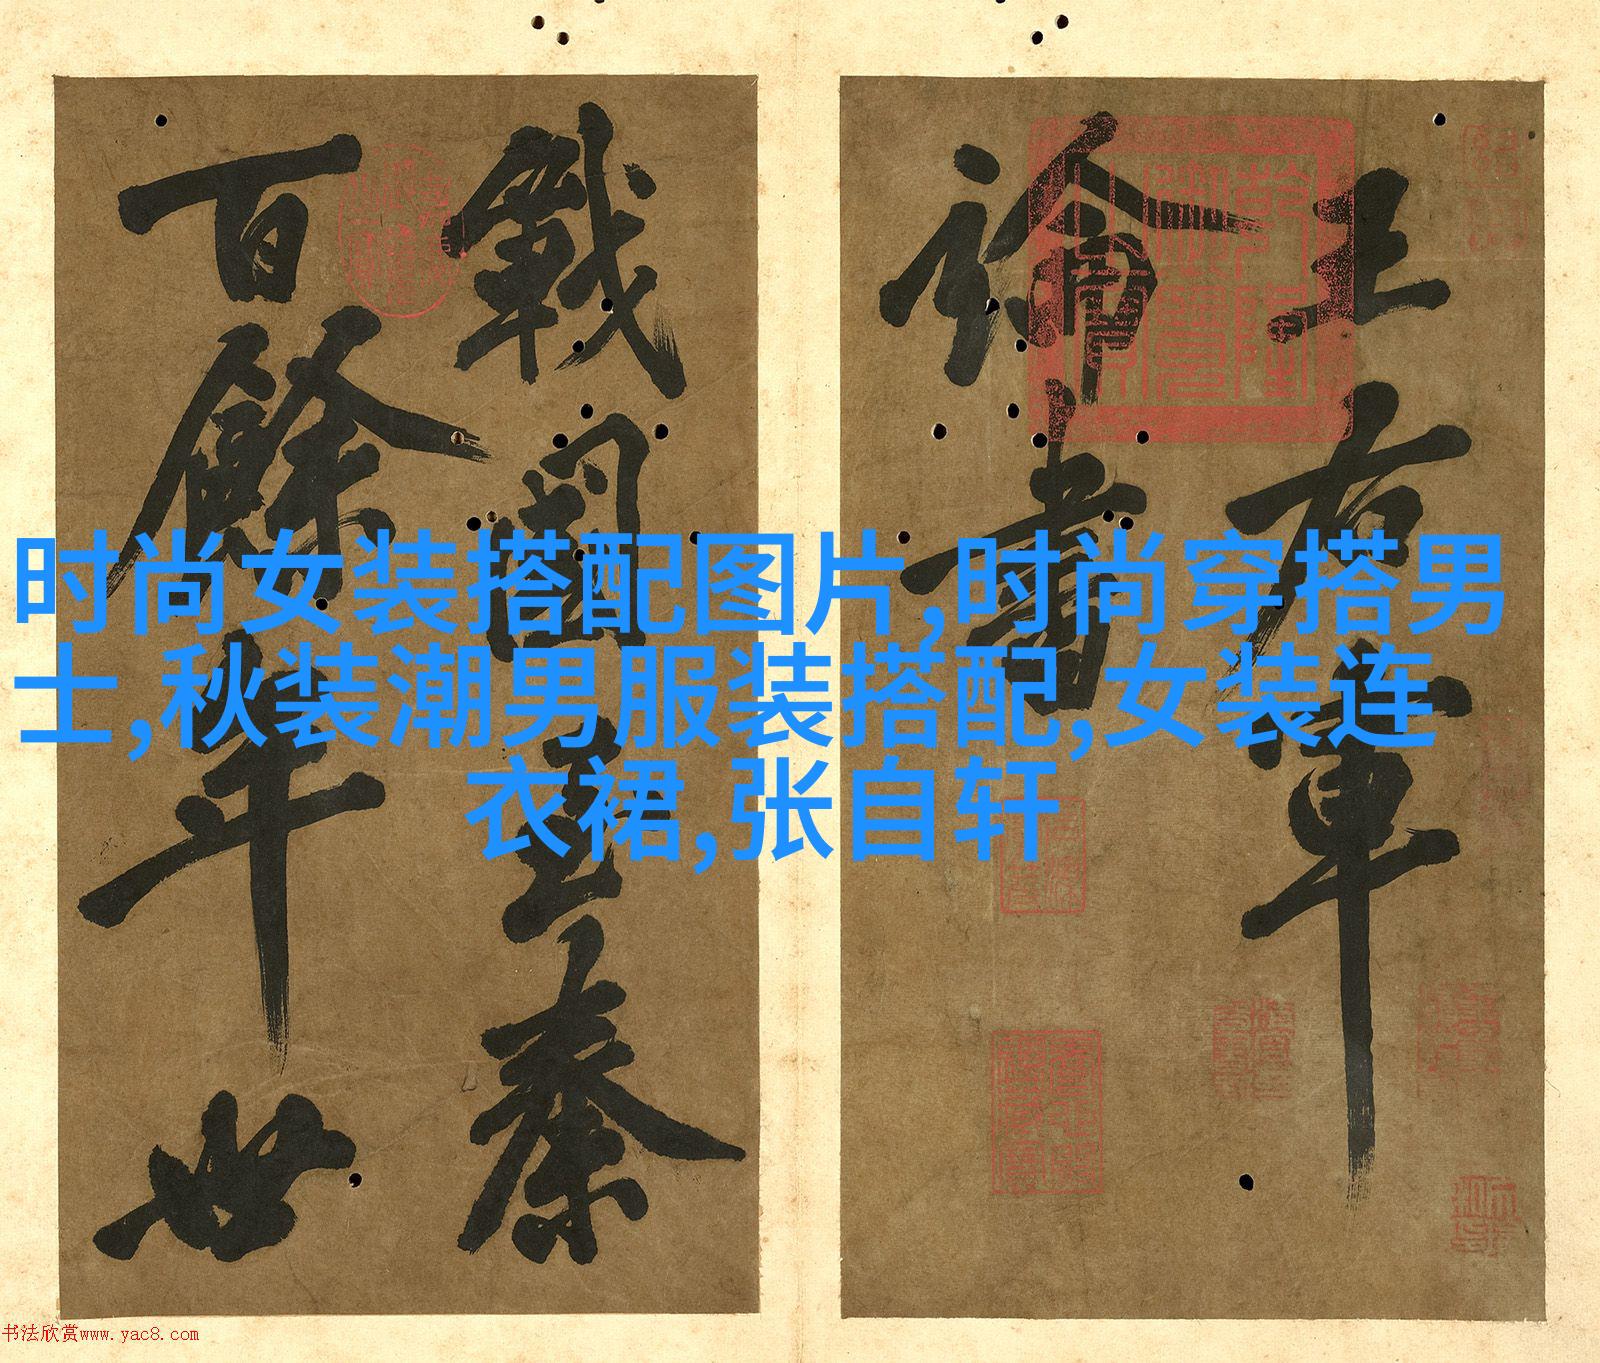 王右軍
論書
戰國至秦
百餘年世
时尚女装搭配图片,时尚穿搭男
士,秋装潮男服装搭配,女装连
衣裙,张自轩
乾隆御覽之寶
书法欣赏www.yac8.com